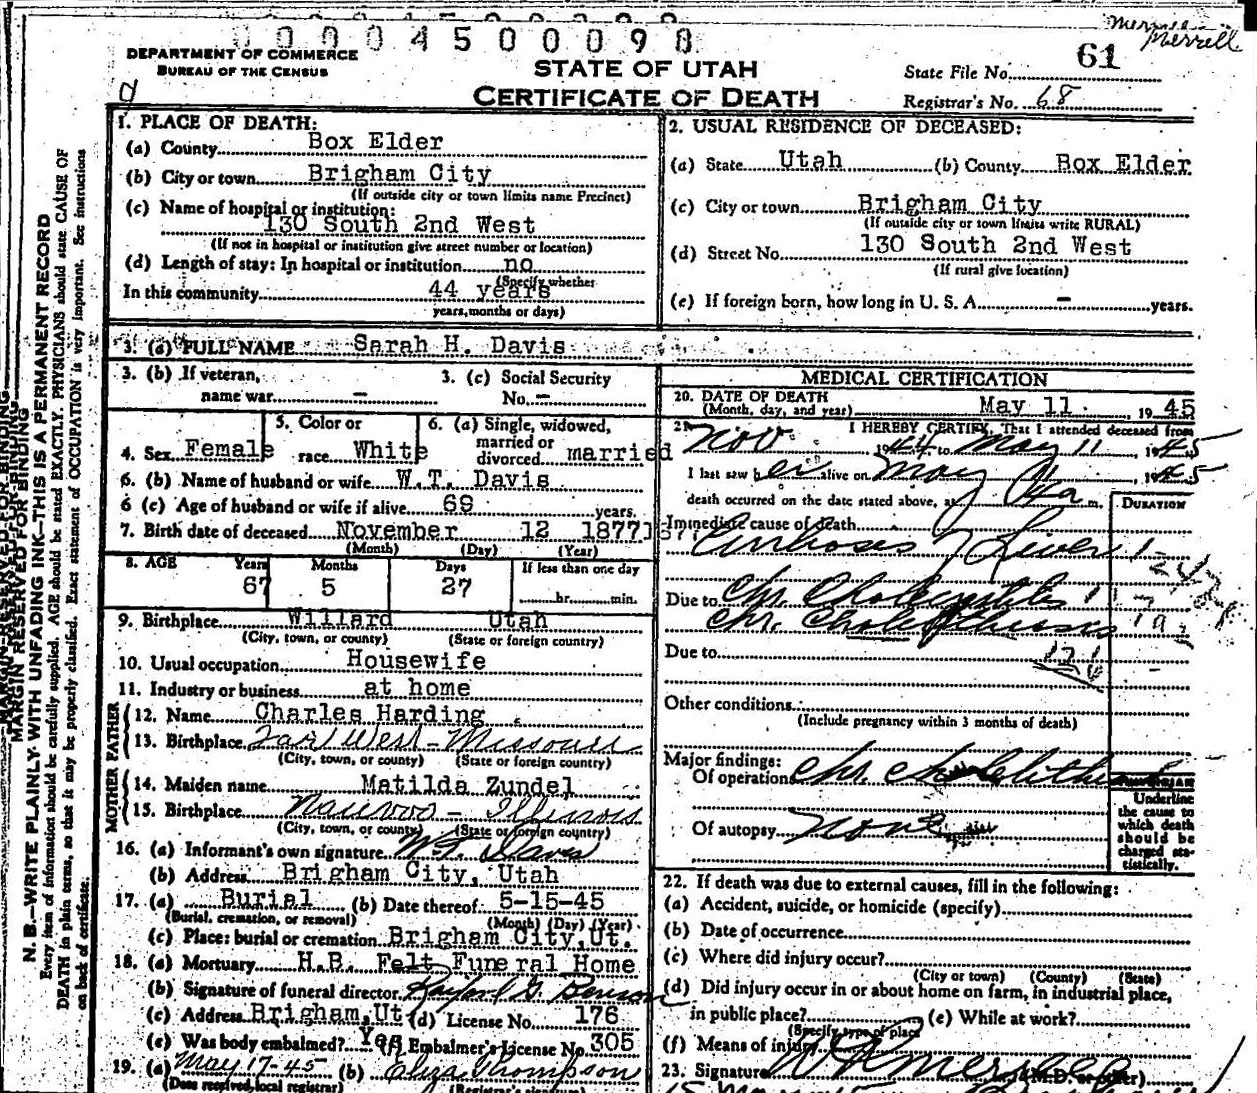 0 0 0 4 5 0 0 0 9 8
Merrill
Merrell
DEPARTMENT OF COMMERCE
BUREAU OF THE CENSUS
STATE OF UTAH
CERTIFICATE OF DEATH
State File No. 61
Registrar's No. 68
1. PLACE OF DEATH:
(a) County Box Elder
(b) City or town Brigham City
(If outside city or town limits name Precinct)
(c) Name of hospital or institution:
130 South 2nd West
(If not in hospital or institution give street number or location)
(d) Length of stay: In hospital or institution no
(Specify whether
In this community 44 years
years, months or days)
2. USUAL RESIDENCE OF DECEASED:
(a) State Utah (b) County Box Elder
(c) City or town Brigham City
(If outside city or town limits write RURAL)
(d) Street No. 130 South 2nd West
(If rural give location)
(e) If foreign born, how long in U. S. A. - years.
3. (a) FULL NAME Sarah H. Davis
3. (b) If veteran,
name war -
3. (c) Social Security
No. -
4. Sex Female
5. Color or
race White
6. (a) Single, widowed,
married or
divorced married
6. (b) Name of husband or wife W.T. Davis
6 (c) Age of husband or wife if alive 69 years.
7. Birth date of deceased November 12 1877
(Month) (Day) (Year)
8. AGE Years Months Days If less than one day
67 5 27 hr. min.
9. Birthplace Willard Utah
(City, town, or county) (State or foreign country)
10. Usual occupation Housewife
11. Industry or business at home
FATHER
12. Name Charles Harding
13. Birthplace Far West - Missouri
(City, town, or county) (State or foreign country)
MOTHER
14. Maiden name Matilda Zundel
15. Birthplace Nauvoo - Illinois
(City, town, or county) (State or foreign country)
16. (a) Informant's own signature W.T. Davis
(b) Address Brigham City, Utah
17. (a) Burial (b) Date thereof 5-15-45
(Burial, cremation, or removal) (Month) (Day) (Year)
(c) Place: burial or cremation Brigham City, Ut.
18. (a) Mortuary H.B. Felt Funeral Home
(b) Signature of funeral director
(c) Address Brigham, Ut (d) License No. 176
(e) Was body embalmed? Yes (f) Embalmer's License No. 305
19. (a) May 17-45 (b) Eliza Thompson
(Date received, local registrar) (Registrar's signature)
MEDICAL CERTIFICATION
20. DATE OF DEATH
(Month, day, and year) May 11 , 19 45
21. I HEREBY CERTIFY, That I attended deceased from
Nov. 1944 to May 11, 1945
I last saw her alive on May , 1945
death occurred on the date stated above, at m.
DURATION
Immediate cause of death
Cirrhoses of Liver
Due to Chr. Cholecystitis
Chr. Cholelithiasis
Due to
Other conditions
(Include pregnancy within 3 months of death)
Major findings:
Of operation Chr. Cholelithiasis
Of autopsy None
PHYSICIAN
Underline
the cause to
which death
should be
charged sta-
tistically.
22. If death was due to external causes, fill in the following:
(a) Accident, suicide, or homicide (specify)
(b) Date of occurrence
(c) Where did injury occur?
(City or town) (County) (State)
(d) Did injury occur in or about home on farm, in industrial place,
in public place? (e) While at work?
(Specify type of place
(f) Means of injury
23. Signature (M.D. or other)
MARGIN RESERVED FOR BINDING
N. B.—WRITE PLAINLY WITH UNFADING INK—THIS IS A PERMANENT RECORD
Every item of information should be carefully supplied. AGE should be stated EXACTLY. PHYSICIANS should state CAUSE OF
DEATH in plain terms, so that it may be properly classified. Exact statement of OCCUPATION is very important. See instructions
on back of certificate.